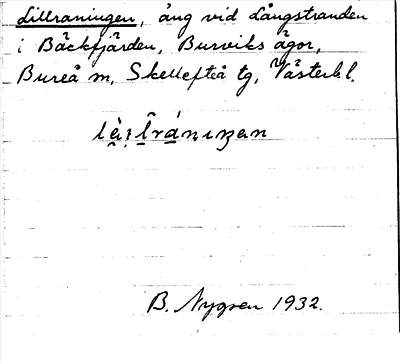 Lillraningen, äng vid Långstranden
i Bäckfjärden, Burviks ägor,
Bureå sn, Skellefteå tg, Västerb. l.
B. Nygren 1932.